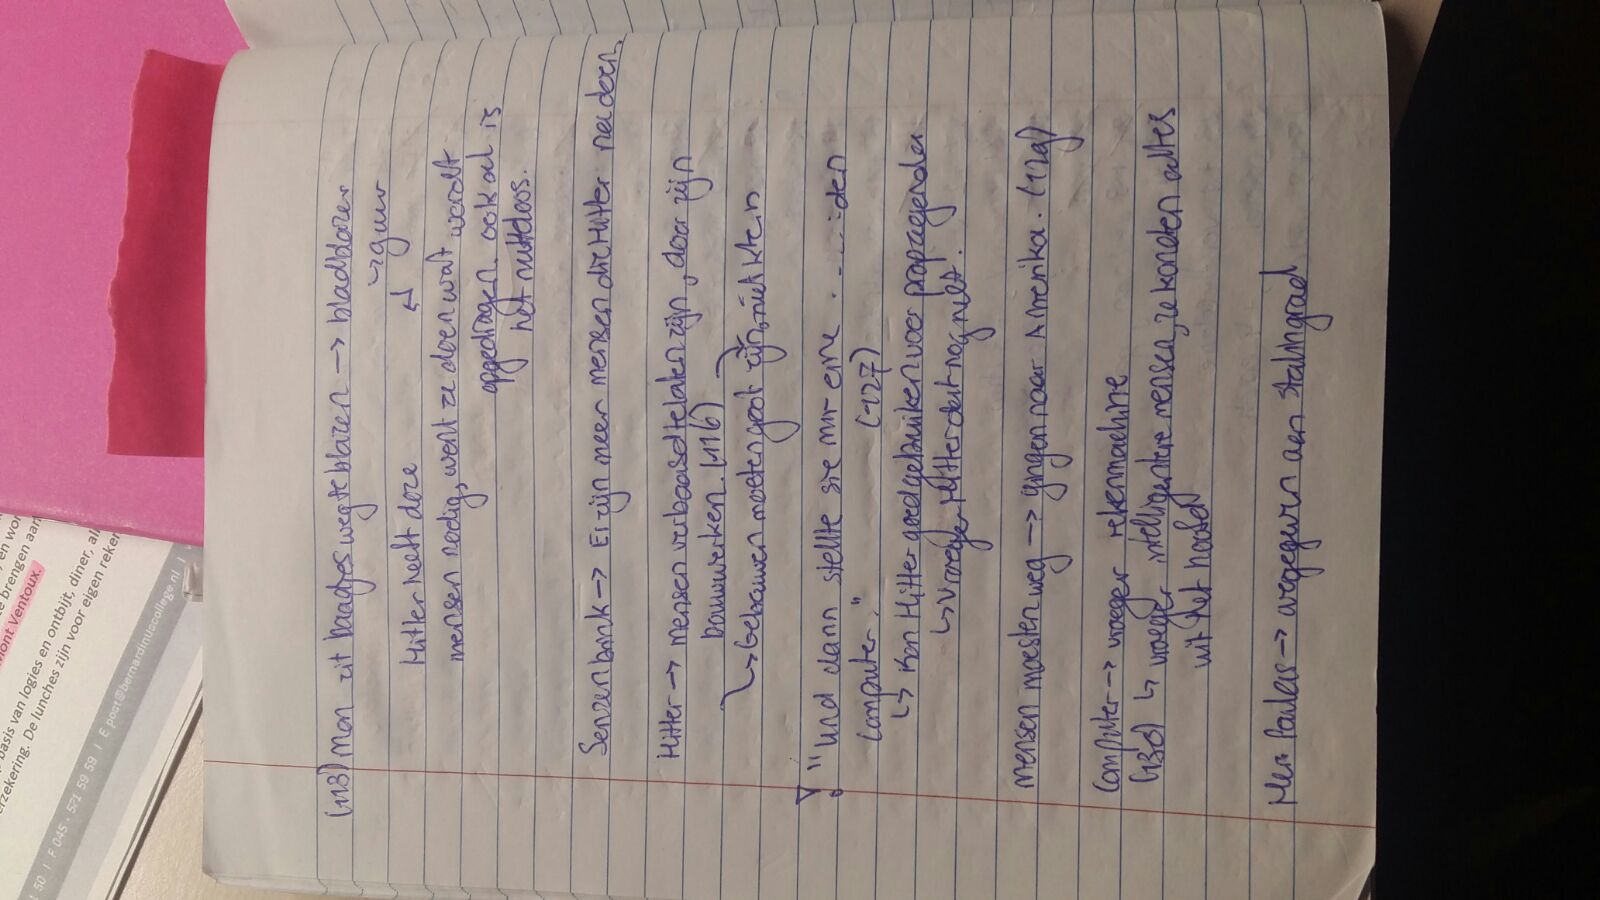 en wor
te brengen aan
Mont Ventoux.
basis van logies en ontbijt, diner, al
zekering. De lunches zijn voor eigen reker
50 | F 045 - 571 59 59 | E post@bernardinuscollege.nl |
(113) Man zit blaadjes weg te blazen → bladblazer
↳ guur
Hitler heeft deze ↲
mensen nodig, want ze doen wat wordt
opgedragen. ook al is
het nutteloos.
Senzenbrink → Er zijn meer mensen die Hitler nadoen.
Hitler → mensen verbaasd te laten zijn, door zijn
bouwwerken. (116)
↳ Gebouwen moeten groot zijn, niet klein
! "Und dann stellte sie mir eine ......: den
Computer." (127)
↳ Kon Hitler goed gebruiken voor propaganda
↳ Vroeger Hitler dat nog niet.
mensen moesten weg → gingen naar Amerika. (129)
Computer → vroeger rekenmachine
(130) ↳ vroeger intelligentere mensen, ze konden alles
uit het hoofd
→ aan Stalingrad